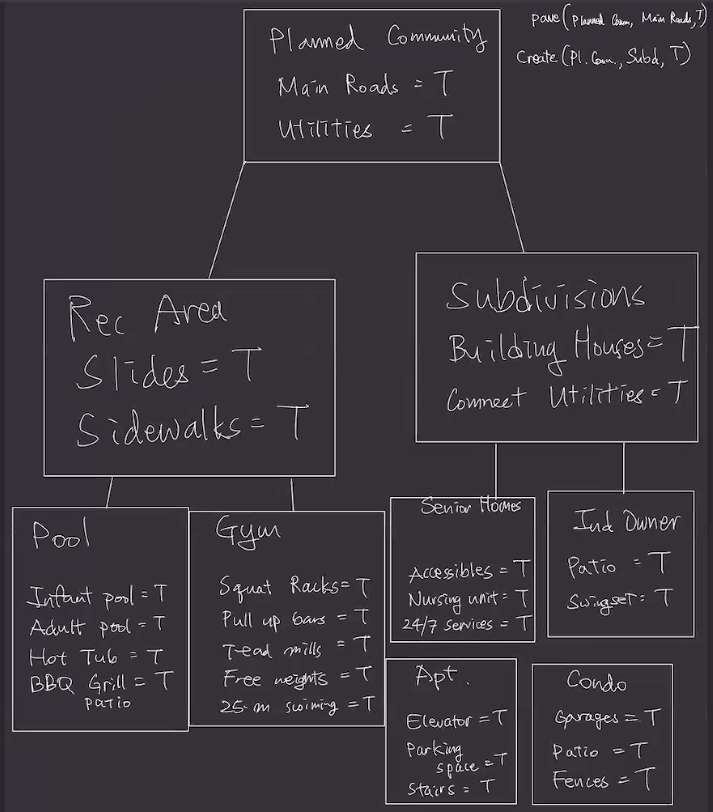 pave (Planned Comm, Main Roads, T)
Create (Pl. Com., Subd, T)
Planned Community
Main Roads = T
Utilities = T
Rec Area
Slides = T
Sidewalks = T
Subdivisions
Building Houses = T
Connect Utilities = T
Pool
Infant pool = T
Adult pool = T
Hot Tub = T
BBQ Grill = T
patio
Gym
Squat Racks = T
Pull up bars = T
Tread mills = T
Free weights = T
25-m swiming = T
Senior Homes
Accessibles = T
Nursing unit = T
24/7 services = T
Ind Owner
Patio = T
Swingset = T
Apt.
Elevator = T
Parking
space = T
Stairs = T
Condo
Garages = T
Patio = T
Fences = T